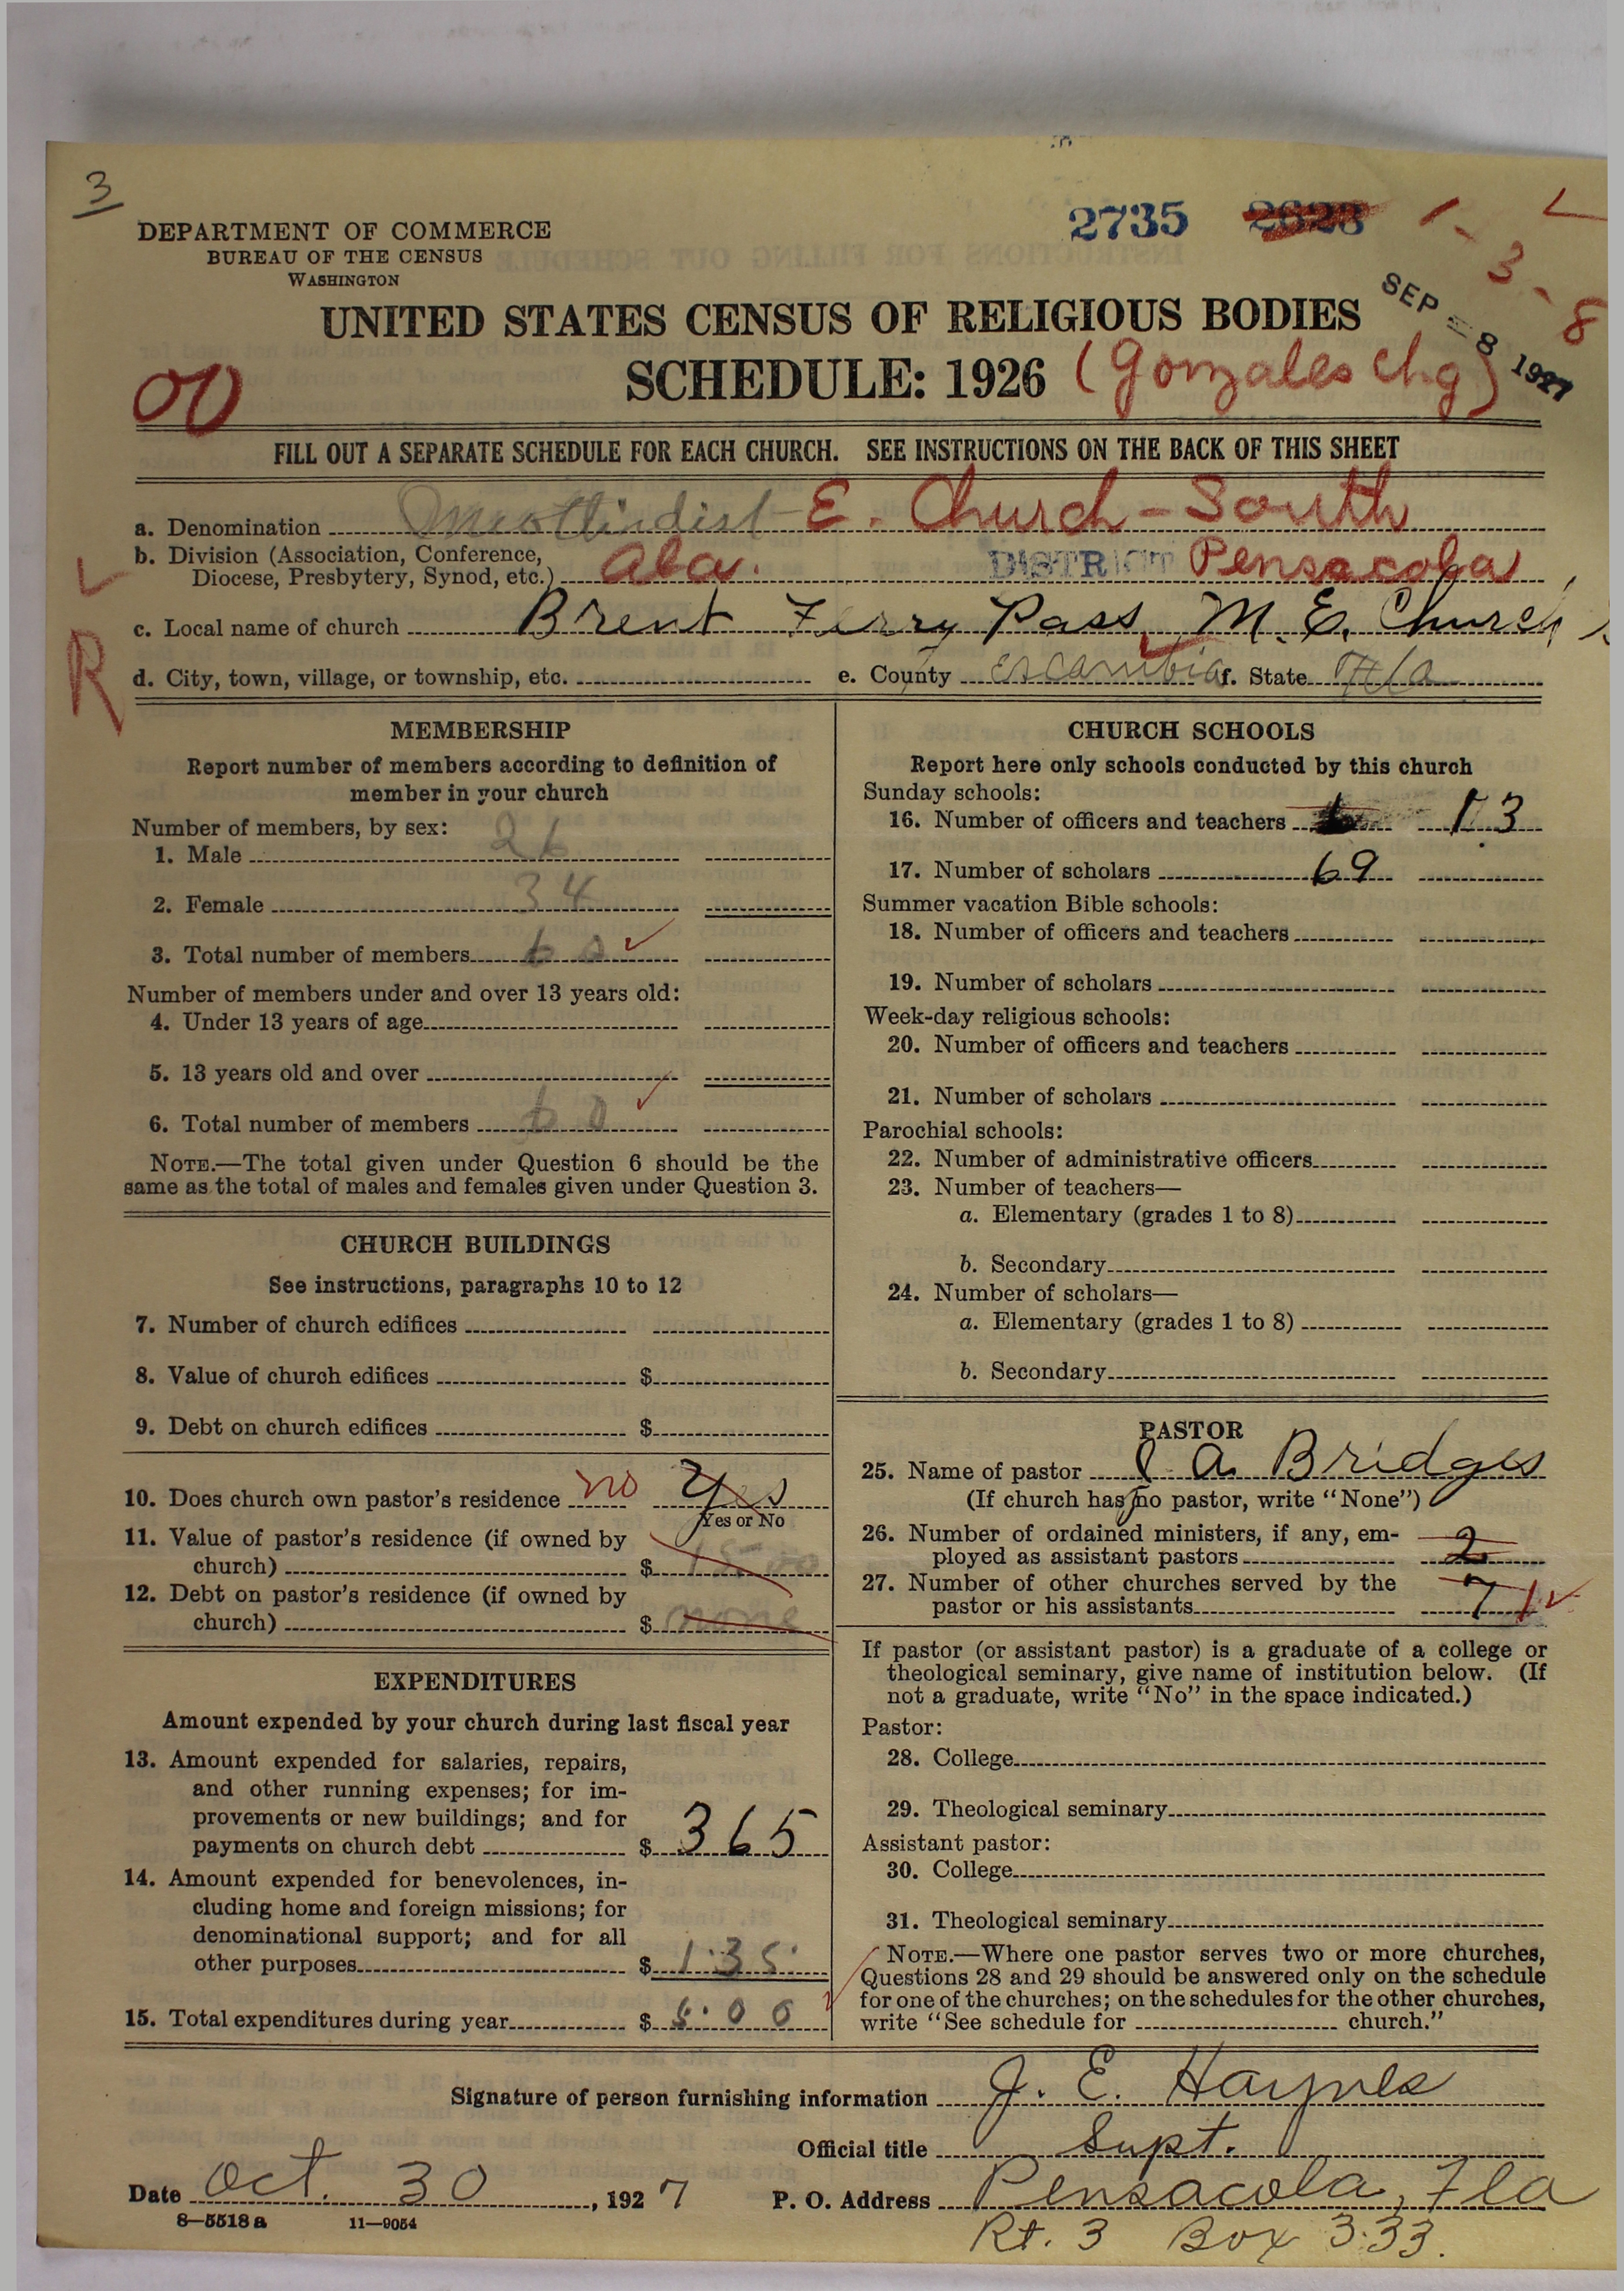 3
2735 2628 1-3-8
DEPARTMENT OF COMMERCE
BUREAU OF THE CENSUS
WASHINGTON
SEP -8 1927
UNITED STATES CENSUS OF RELIGIOUS BODIES
SCHEDULE: 1926 (Gonzales Chg)
00
FILL OUT A SEPARATE SCHEDULE FOR EACH CHURCH. SEE INSTRUCTIONS ON THE BACK OF THIS SHEET
a. Denomination E. Church-South
b. Division (Association, Conference,
Diocese, Presbytery, Synod, etc.) Ala. DISTRICT Pensacola
c. Local name of church Brent Ferry Pass M. E. Church
R
d. City, town, village, or township, etc. e. County Escambia f. State Fla
MEMBERSHIP
Report number of members according to definition of
member in your church
Number of members, by sex:
1. Male 26
2. Female 34
3. Total number of members 60
Number of members under and over 13 years old:
4. Under 13 years of age
5. 13 years old and over
6. Total number of members 60
NOTE.—The total given under Question 6 should be the
same as the total of males and females given under Question 3.
CHURCH BUILDINGS
See instructions, paragraphs 10 to 12
7. Number of church edifices
8. Value of church edifices $
9. Debt on church edifices $
10. Does church own pastor's residence no Yes
Yes or No
11. Value of pastor's residence (if owned by
church) $ 1500
12. Debt on pastor's residence (if owned by
church) $ none
EXPENDITURES
Amount expended by your church during last fiscal year
13. Amount expended for salaries, repairs,
and other running expenses; for im-
provements or new buildings; and for
payments on church debt $ 365
14. Amount expended for benevolences, in-
cluding home and foreign missions; for
denominational support; and for all
other purposes $ 135
15. Total expenditures during year $ 500
CHURCH SCHOOLS
Report here only schools conducted by this church
Sunday schools:
16. Number of officers and teachers 13
17. Number of scholars 69
Summer vacation Bible schools:
18. Number of officers and teachers
19. Number of scholars
Week-day religious schools:
20. Number of officers and teachers
21. Number of scholars
Parochial schools:
22. Number of administrative officers
23. Number of teachers—
a. Elementary (grades 1 to 8)
b. Secondary
24. Number of scholars—
a. Elementary (grades 1 to 8)
b. Secondary
PASTOR
25. Name of pastor A Bridges
(If church has no pastor, write "None")
26. Number of ordained ministers, if any, em-
ployed as assistant pastors 2
27. Number of other churches served by the
pastor or his assistants 7 1
If pastor (or assistant pastor) is a graduate of a college or
theological seminary, give name of institution below. (If
not a graduate, write "No" in the space indicated.)
Pastor:
28. College
29. Theological seminary
Assistant pastor:
30. College
31. Theological seminary
NOTE.—Where one pastor serves two or more churches,
Questions 28 and 29 should be answered only on the schedule
for one of the churches; on the schedules for the other churches,
write "See schedule for church."
Signature of person furnishing information J. E. Haynes
Official title Supt.
Date Oct. 30, 1927 P. O. Address Pensacola, Fla
8—5518a 11—9054 Rt. 3 Box 333.